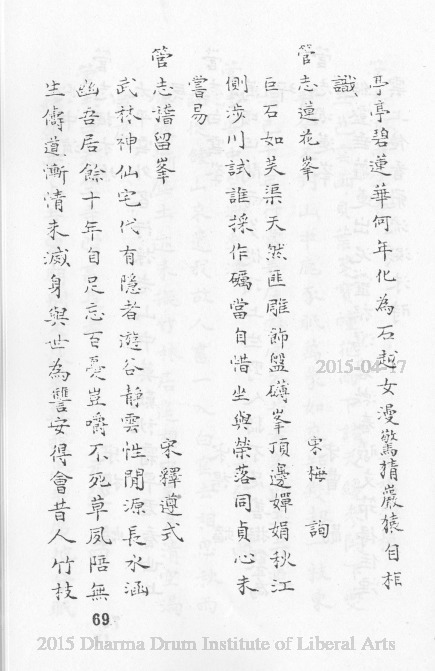 亭亭碧蓮華何年化為石越女漫驚猜巖猿自相
識
管志蓮花峯
宋梅詢
巨石如芙渠天然匪雕飾盤礴峯頂邊嬋娟秋江
側涉川試誰採作礪當自惜坐與榮落同貞心未
嘗易
管志譜留峯
宋釋遵式
武林神仙宅代有隱者遊谷靜雲性閒源長水涵
幽吾居餘十年自足忘百憂豈嚼不死草夙陪無
生儔道漸情未滅身與世為讐安得會昔人竹枝
69
2015-04-17
2015 Dharma Drum Institute of Liberal Arts